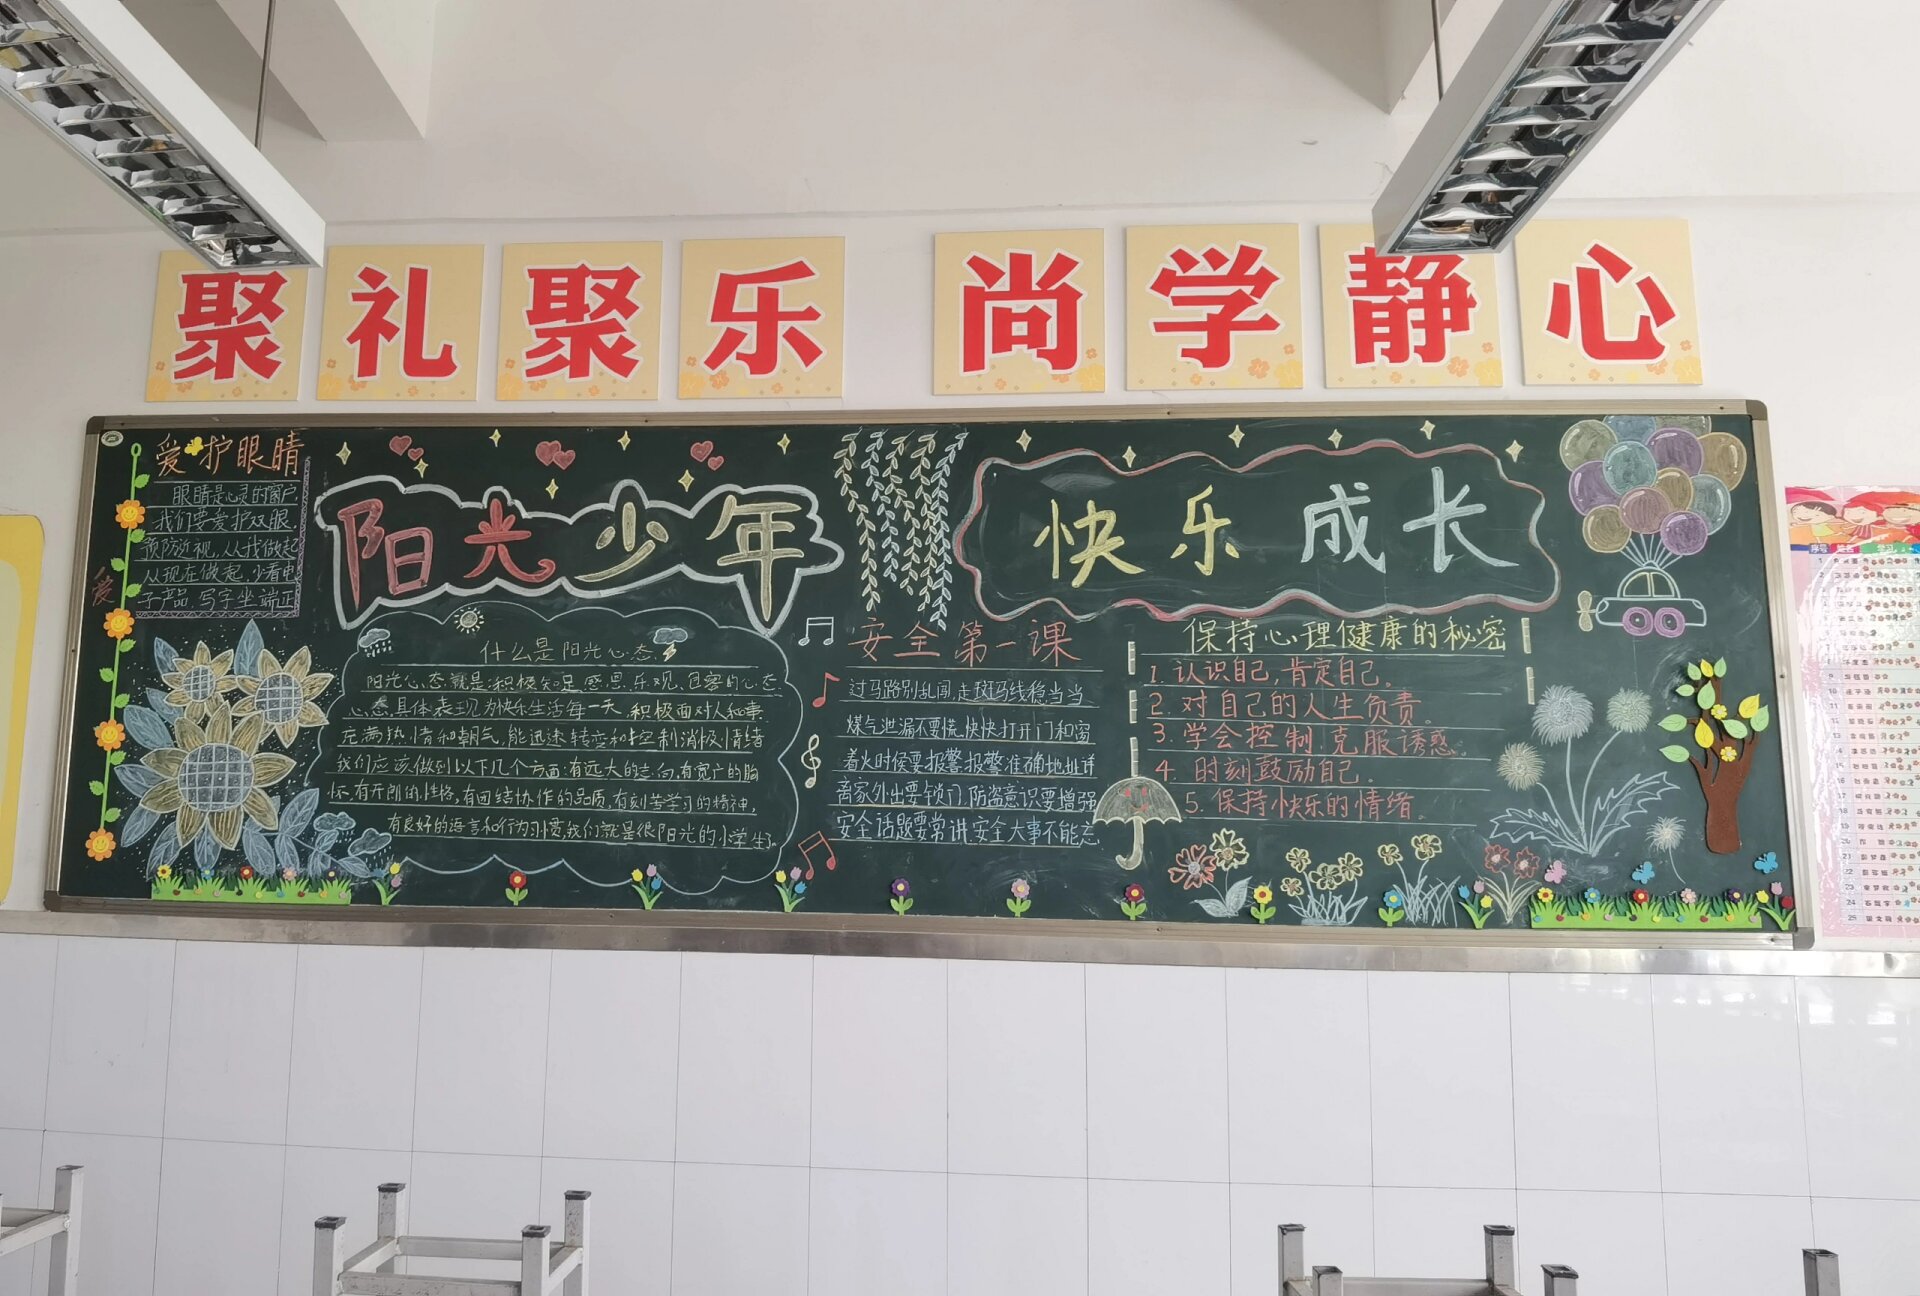 聚礼聚乐 尚学静心
爱护眼睛
眼睛是心灵的窗户,
我们要爱护双眼,
预防近视,从我做起
从现在做起,少看电
子产品,写字坐端正
爱
阳光少年
什么是阳光心态
阳光心态就是:积极、知足、感恩、乐观、
心态具体表现为快乐生活每一天,积极面对人和事
充满热情和朝气,能迅速转变和控制消极情绪
我们应该做到以下几个方面:有远大的志向,有宽广的胸
怀,有开朗的性格,有团结协作的品质,有刻苦学习的精神,
有良好的语言和行为习惯,我们就是很阳光的小学生了。
快乐成长
安全第一课
过马路别乱闯,走斑马线稳当当
煤气泄漏不要慌,快快打开门和窗
着火时候要报警,报警准确地址详
离家外出要锁门,防盗意识要增强
安全话题要常讲,安全大事不能忘
保持心理健康的秘密
1. 认识自己,肯定自己。
2. 对自己的人生负责。
3. 学会控制,克服诱惑。
4. 时刻鼓励自己。
5. 保持快乐的情绪。
序号 姓名 学习